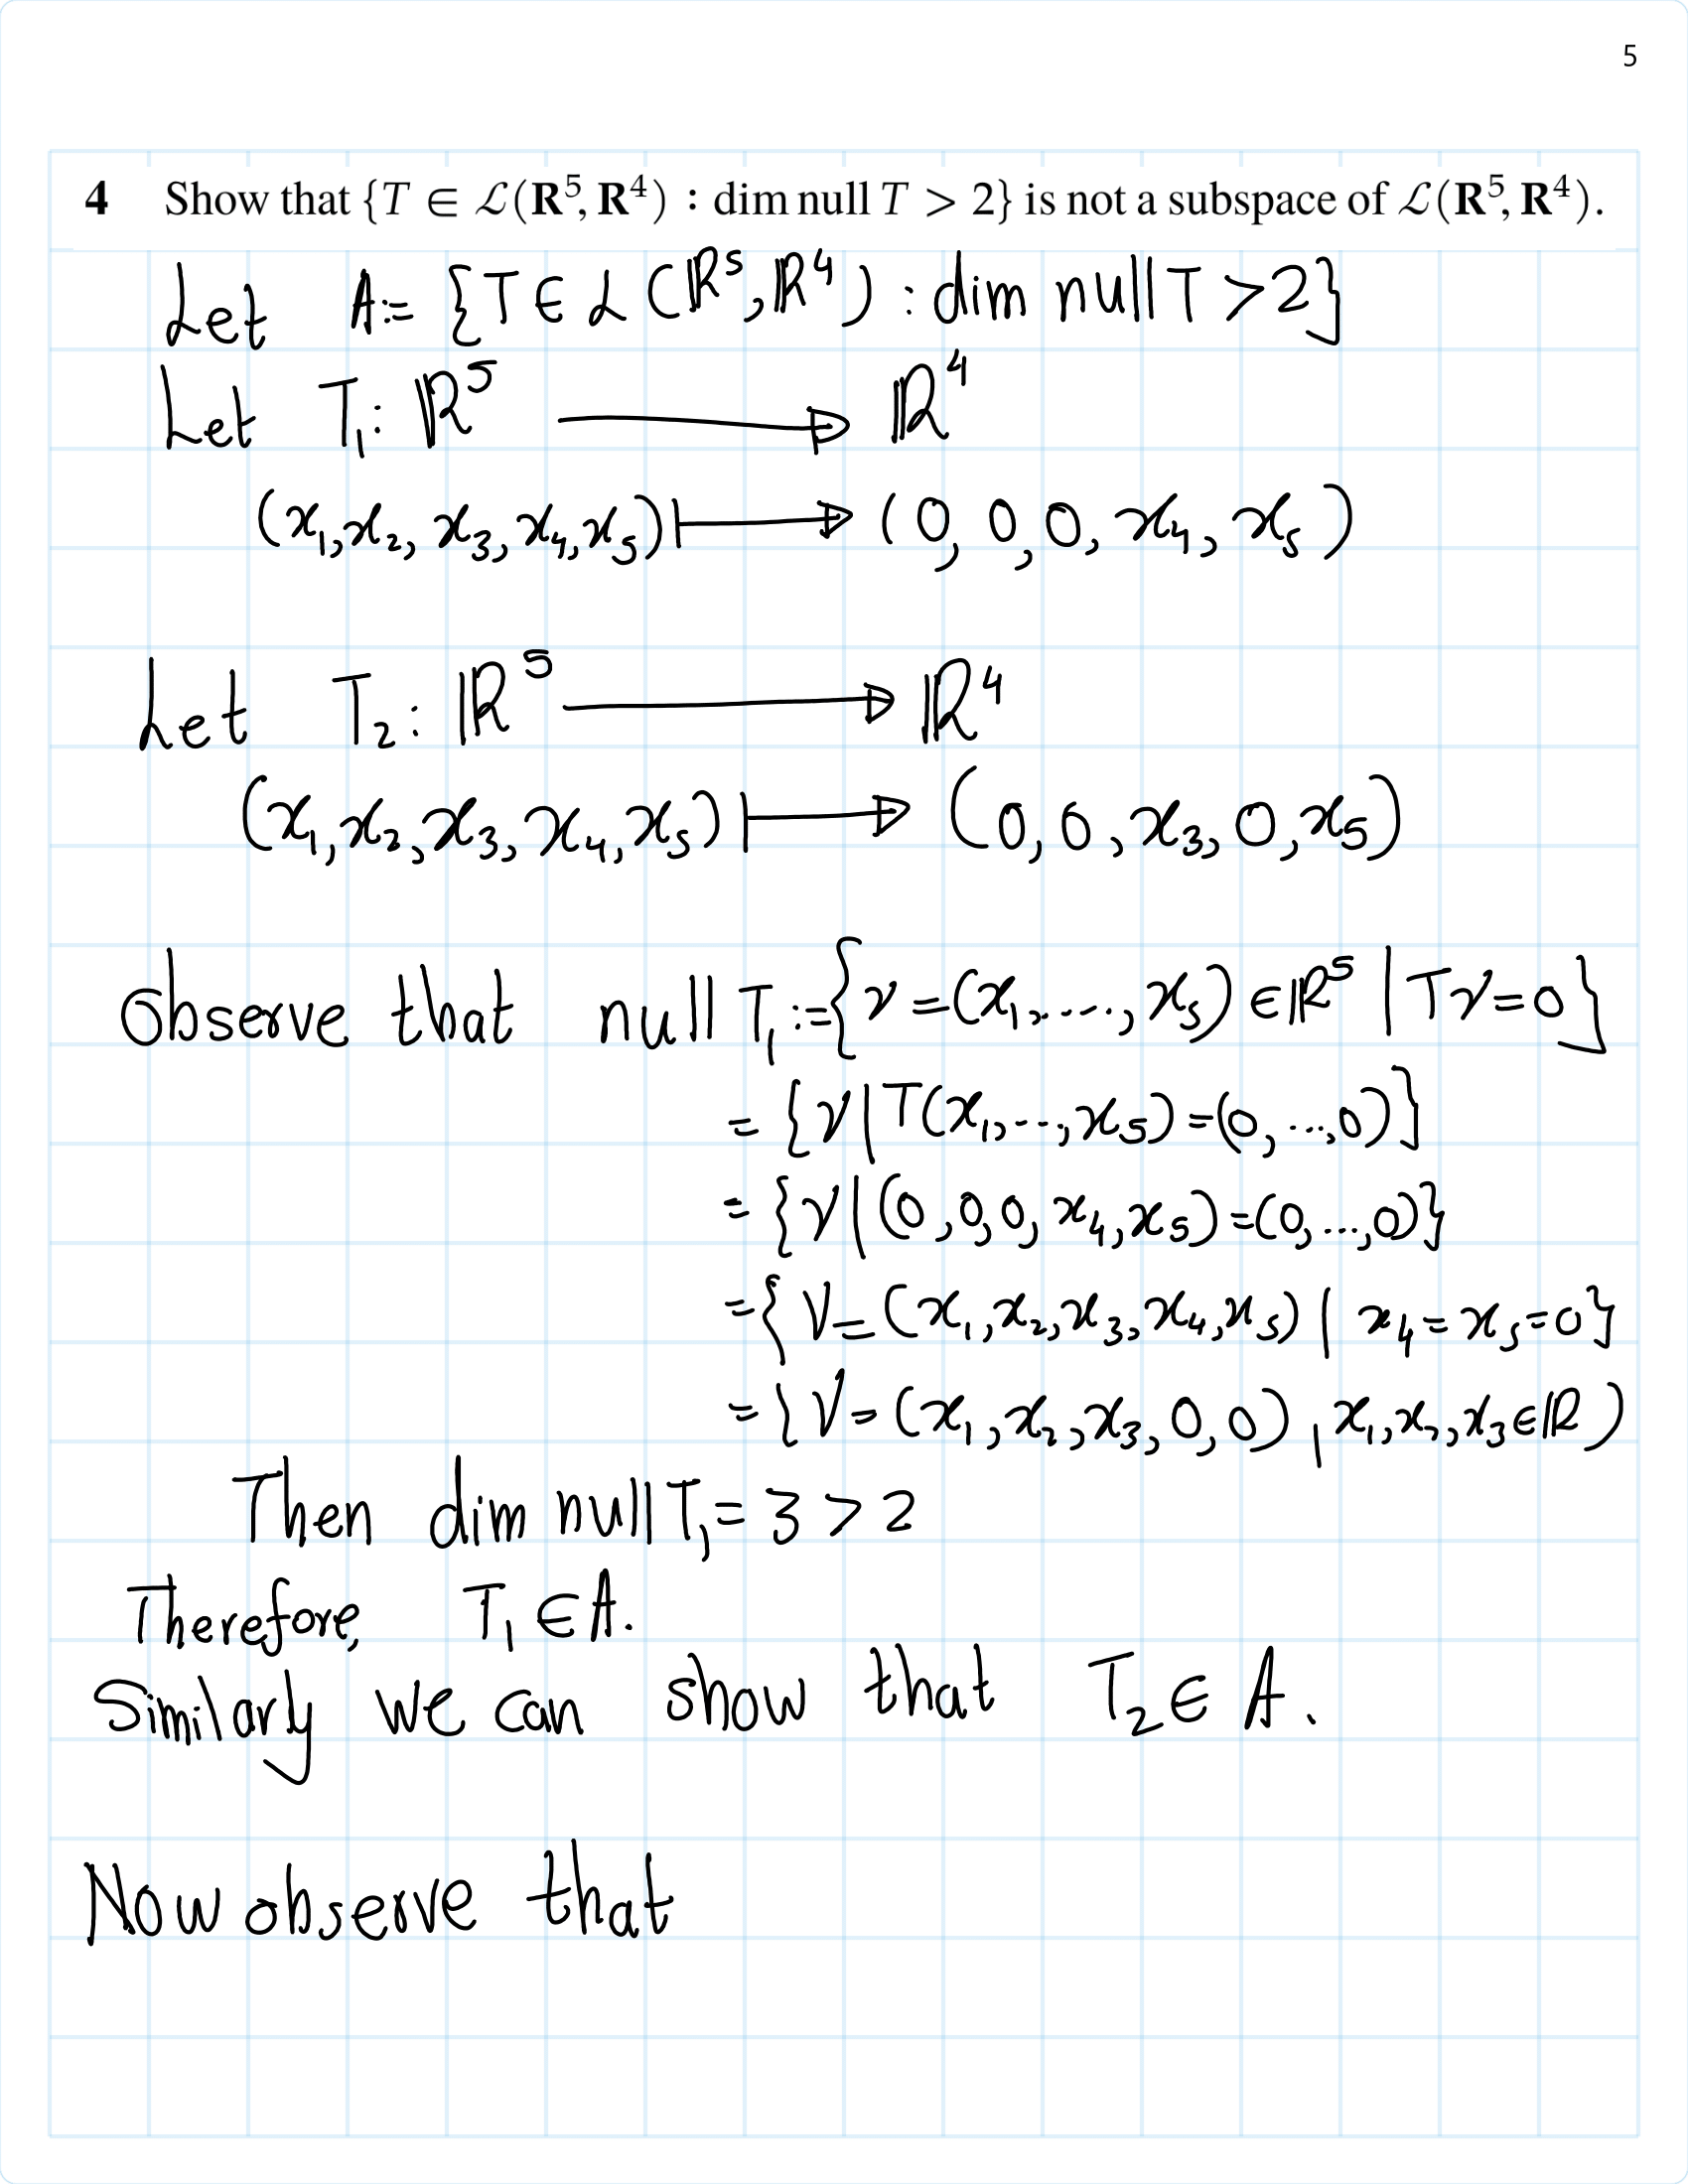 5
4 Show that {T ∈ ℒ(R⁵, R⁴) : dim null T > 2} is not a subspace of ℒ(R⁵, R⁴).
Let A:= {T ∈ ℒ(ℝ⁵, ℝ⁴) : dim null T > 2}
Let T₁: ℝ⁵ ⟶ ℝ⁴
(x₁, x₂, x₃, x₄, x₅) ⟼ (0, 0, 0, x₄, x₅)
Let T₂: ℝ⁵ ⟶ ℝ⁴
(x₁, x₂, x₃, x₄, x₅) ⟼ (0, 0, x₃, 0, x₅)
Observe that null T₁ := {v = (x₁, ...., x₅) ∈ ℝ⁵ | Tv = 0}
= {v | T(x₁, ..., x₅) = (0, ..., 0)}
= {v | (0, 0, 0, x₄, x₅) = (0, ..., 0)}
= {V = (x₁, x₂, x₃, x₄, x₅) | x₄ = x₅ = 0}
= {V = (x₁, x₂, x₃, 0, 0) , x₁, x₂, x₃ ∈ ℝ)
Then dim null T₁ = 3 > 2
Therefore, T₁ ∈ A.
Similarly we can show that T₂ ∈ A.
Now observe that